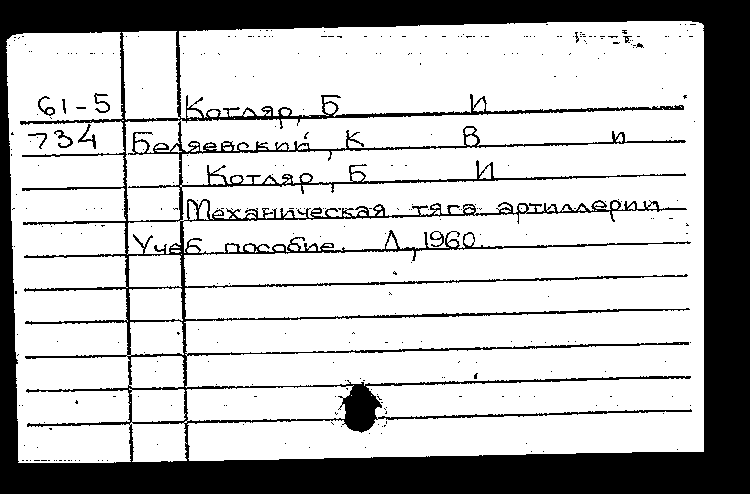 61-5 Котляр, Б И
734 Беляевский, К В и
Котляр, Б И
Механическая тяга артиллерии
Учеб пособие. Л, 1960